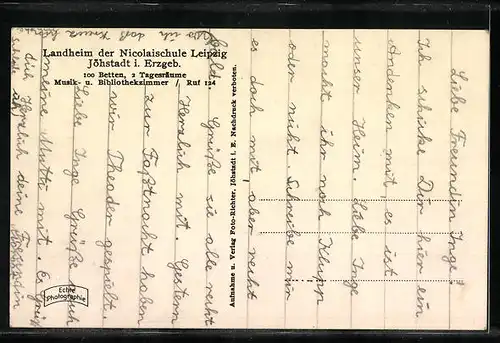 Landheim der Nicolaischule Leipzig
Jöhstadt i. Erzgeb.
100 Betten, 2 Tagesräume
Musik- u. Bibliothekzimmer / Ruf 124
Aufnahme u. Verlag Foto-Richter, Jöhstadt i. E. Nachdruck verboten.
Echte
Photographie
Liebe Freundin Inge
Ich schicke Dir hier ein
Andenken mit es ist
unser Heim. Liebe Inge
macht ihr noch
oder nicht Schreibe mir
es doch mit aber recht
bald Grüße sie alle recht
Herzlich mit. Gestern
zur Faßtnacht haben
wir Theader gespielt.
Liebe Inge Grüße auch
meine Mutti mit. Es Grüßt
dich Herzlich deine Freundin